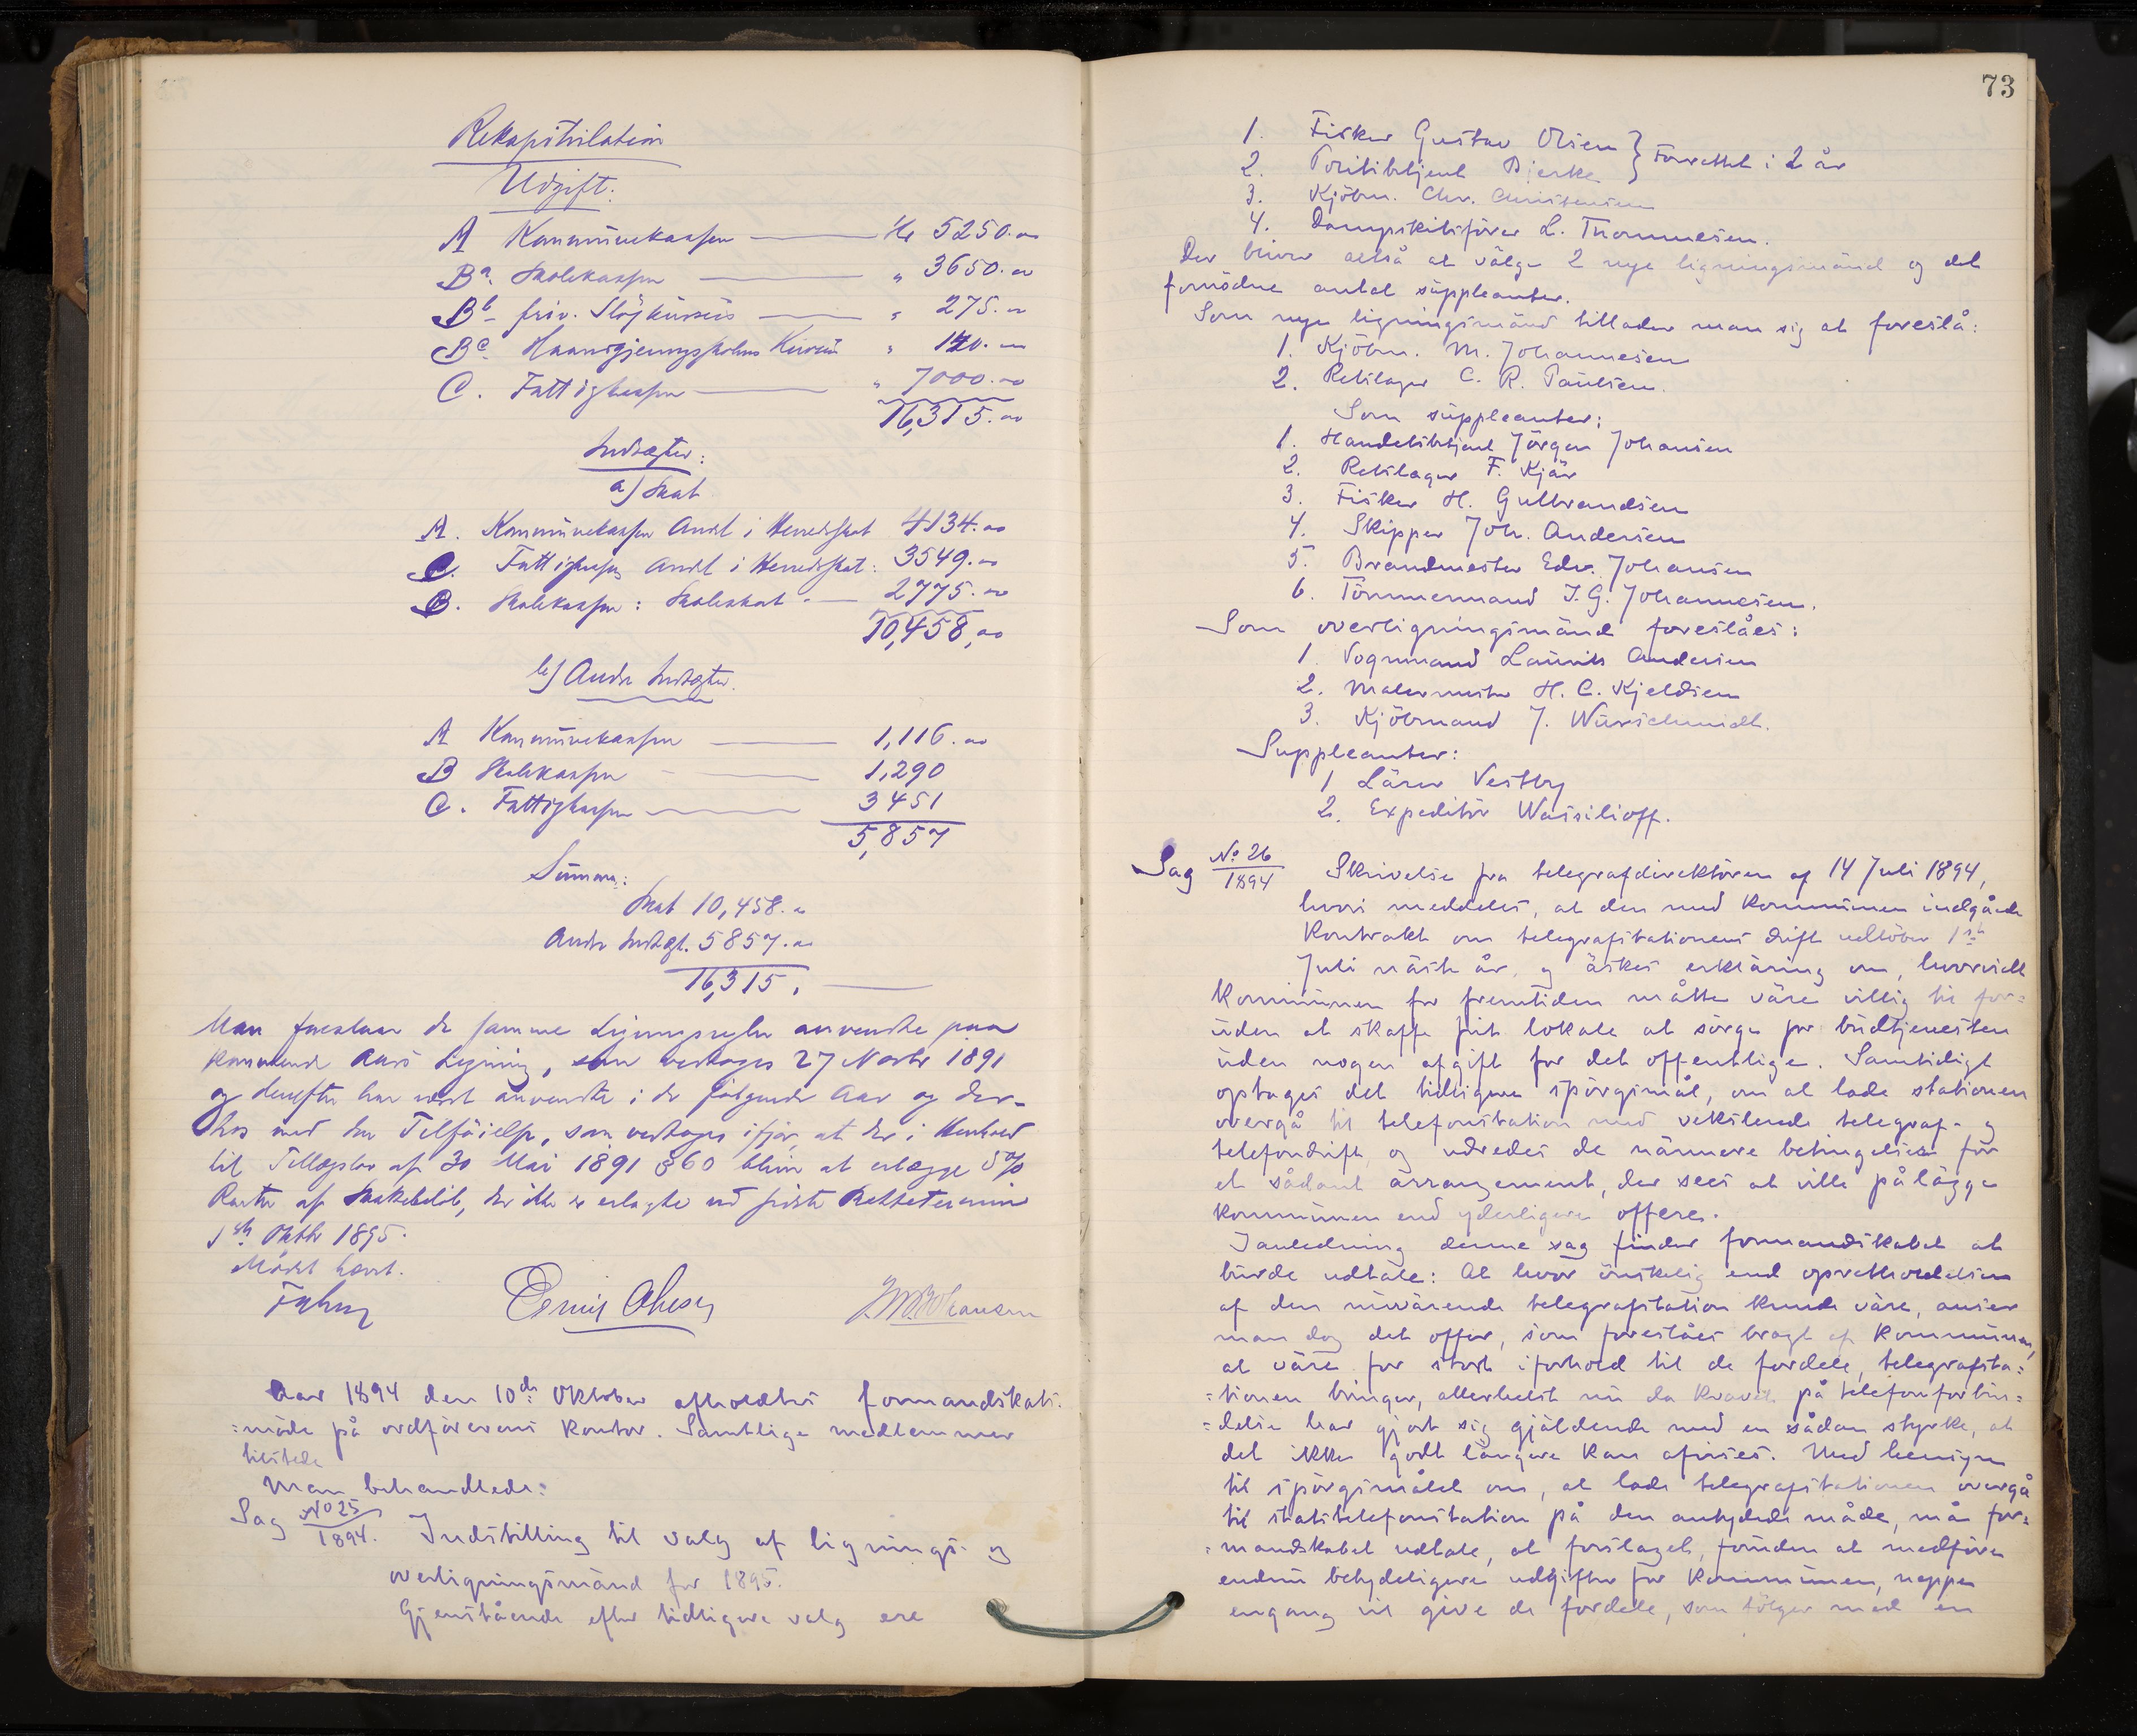 Rekapitulation
Udgift:
A Kommunekassen — Kr 5250.00
Ba. Skolekassen — " 3650.00
Bb - friv. Sløjkursus — " 275.00
Bc. Haandgjerningsskolens Kursus " 140.00
C. Fattigkassen — " 7000.00
16,315.00
Indtægter:
a) Skat
A. Kommunekassen Andel i Herredsskat 4134.00
C. Fattigkassens Andel i Herredsskat: 3549.00
B. Skolekassen: Skoleskat — 2775.00
10,458,00
b) Andre Indtægter.
A Kommunekassen — 1,116.00
B Skolekassen — 1,290
C. Fattigkassen — 3451
5,857
Summa:
Skat 10,458.00
Andre Indtægt. 5857.00
16,315. —
Man foreslaar de samme Ligningsregler anvendte paa
kommende Aars Ligning, som vedtoges 27 Novbr 1891
og derefter har været anvendte i de følgende Aar og der-
hos med den Tilføielse, som vedtoges ifjor, at der i Henhold
til Tillægslov af 30 Mai 1891 § 60 bliver at erlægge 5 %
Renter af Skattebeløb, der ikke er erlagte ved sidste Skattetermin
1ste Oktbr 1895.
Mödet hævet.
Emil Olsen
Johansen
Aar 1894 den 10de Oktober afholdtes formandskabs-
=möde på ordförerens kontor. Samtlige medlemmer
tilstede
Man behandlede:
Sag No 25
1894. Indstilling til valg af lignings- og
overligningsmänd for 1895.
Gjenstående efter tidligere valg ere
73
1. Fisker Gustav Olsen } Forrettet i 2 år
2. Politibetjent Bjerke
3. Kjöbm. Chr. Christensen
4. Dampskibsförer L. Thommesen.
Der bliver altså at välge 2 nye ligningsmänd og det
fornödne antal suppleanter.
Som nye ligningsmänd tillader man sig at foreslå:
1. Kjöbm. M. Johannesen
2. Rebslager C. R. Paulsen.
Som suppleanter:
1. Handelsbetjent Jörgen Johansen
2. Rebslager F. Kjär
3. Fisker H. Gulbrandsen
4. Skipper Joh. Andersen
5. Brandmester Edv. Johansen
6. Tömmermand J. G. Johannesen.
Som overligningsmänd foreslåes:
1. Vognmand Laurits Andersen
2. Malermester H. C. Kjeldsen
3. Kjöbmand J. Würschmidt.
Suppleanter:
1 Lärer Vestby
2. Expeditör Wassilioff.
Sag No 26
1894 Skrivelse fra telegrafdirektören af 14 Juli 1894,
hvori meddeles, at den med kommunen indgåede
kontrakt om telegrafstationens drift udlöber 1ste
Juli näste år, og äskes erkläring om, hvorvidt
kommunen for fremtiden måtte väre villig til for=
uden at skaffe frit lokale at sörge for budtjenesten
uden nogen afgift for det offentlige. Samtidigt
optages det tidligere spörgsmål, om at lade stationen
overgå til telefonstation med vekslende telegraf- og
telefondrift, og udredes de närmere betingelser for
et sådant arrangement, der sees at ville pålägge
kommunen end yderligere offere.
I anledning denne sag finder formandskabet at
burde udtale: At hvor önskelig end opretholdelsen
af den nuvärende telegrafstation kunde väre, anser
man dog det offer, som foreslåes bragt af kommunen,
at väre for stort i forhold til de fordele, telegrafsta=
=tionen bringer, allerhelst nu da kravet på telefonforbin=
=delse har gjort sig gjäldende med en sådan styrke, at
det ikke godt längere kan afvises. Med hensyn
til spörgsmålet om, at lade telegrafstationen overgå
til statstelefonstation på den antydede måde, må for=
=mandskabet udtale, at forslaget, foruden at medföre
endnu betydeligere udgifter for kommunen, neppe
engang vil give de fordele, som fölger med en